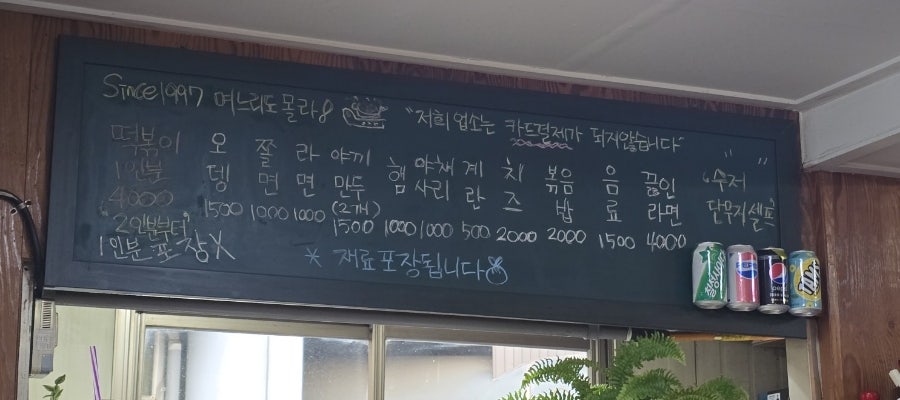 Since1997 며느리도 몰라
"저희 업소는 카드결제가 되지않습니다"
떡볶이
1인분
4000
"2인분부터"
1인분 포장X
오뎅
1500
쫄면
1000
라면
1000
야끼만두
(2개)
1500
햄
1000
야채사리
1000
계란
500
치즈
2000
볶음밥
2000
음료
1500
끓인라면
4000
"수저
단무지 셀프"
* 재료포장됩니다
칠성사이다
pepsi
pepsi